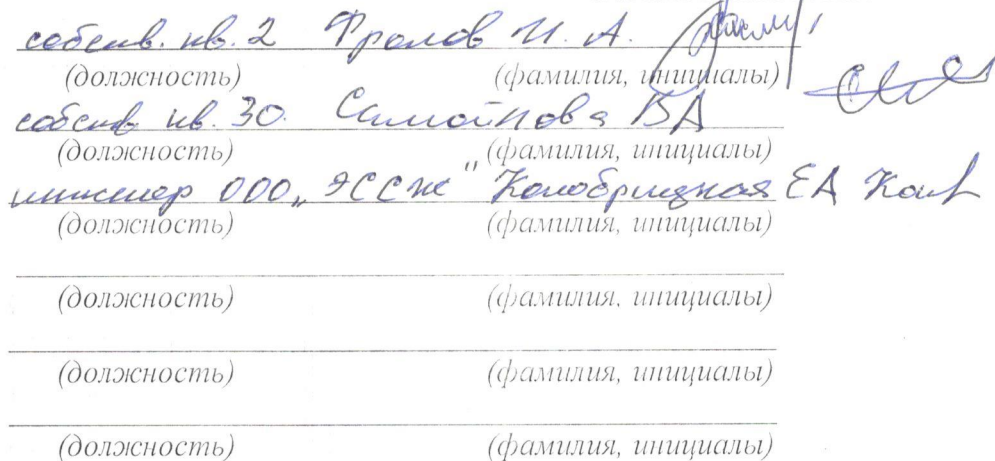 собств. кв. 2 Фролов И. А.
(должность) (фамилия, инициалы)
собств кв. 30. Самойлова ВА
(должность) (фамилия, инициалы)
инженер ООО „ЭССЖ" Колобрицкая ЕА
(должность) (фамилия, инициалы)
(должность) (фамилия, инициалы)
(должность) (фамилия, инициалы)
(должность) (фамилия, инициалы)